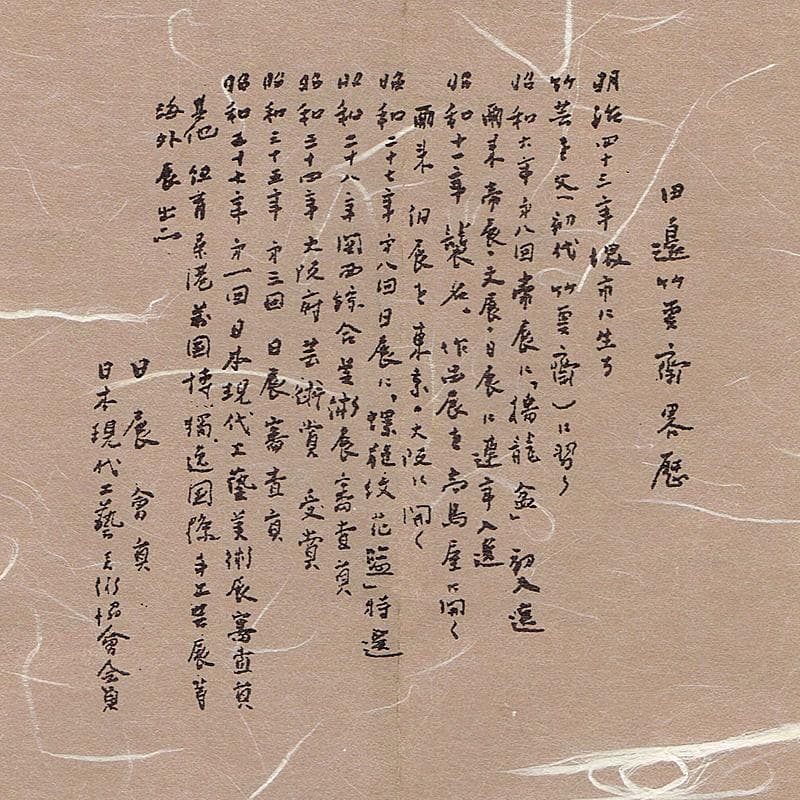 田邊竹雲齋畧歴
明治四十三年堺市に生る
竹芸を父(初代竹雲齋)に習う
昭和六年第八回帝展に「揚龍盆」初入選
爾来帝展・文展・日展に連年入選
昭和十二年襲名。作品展を高島屋に開く
爾来個展を東京・大阪に開く
昭和二十七年第八回日展に「螺旋紋花籃」特選
昭和二十八年関西綜合美術展審査員
昭和三十四年大阪府芸術賞受賞
昭和三十五年第三回日展審査員
昭和三十七年第一回日本現代工藝美術展審査員
其他紐育桑港萬国博、獨逸国際手工芸展等
海外展出品
日展會員
日本現代工藝美術協會会員